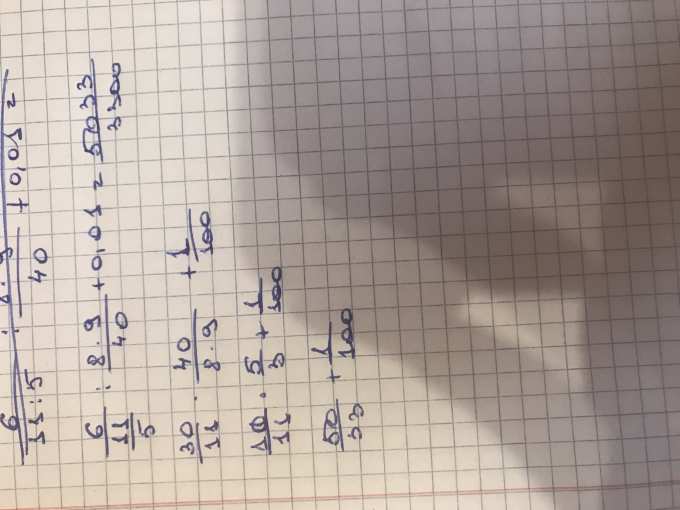 6/11:5 : 8·9/40 + 0,01 =
6/(11/5) : 8·9/40 + 0,01 = 5033/3300
30/11 · 40/8·9 + 1/100
10/11 · 5/3 + 1/100
50/33 + 1/100